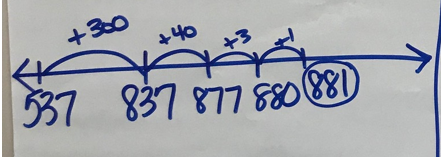 +300 +40 +3 +1
537 837 877 880 881